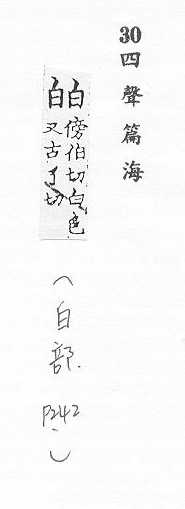 30 四聲篇海
白白
傍伯切白色
又古了切
(白部. P242)